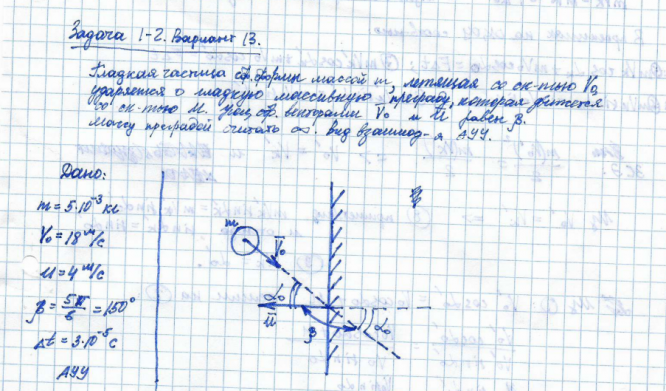 Задача 1-2. Вариант 13.
Гладкая частица сф. формы массой m, летящая со ск-тью V₀
ударяется о гладкую массивную преграду, которая движется
со ск-тью U. Угол ср. векторами V̄₀ и Ū равен β.
Массу преграды считать ∞. Вид взаимод-я АУУ.
Дано:
m = 5·10⁻³ кг
V₀ = 18 м/с
U = 4 м/с
β = 5π/6 = 150°
Δt = 3·10⁻⁵ с
АУУ
m
V̄₀
α₀
Ū
β
α₀